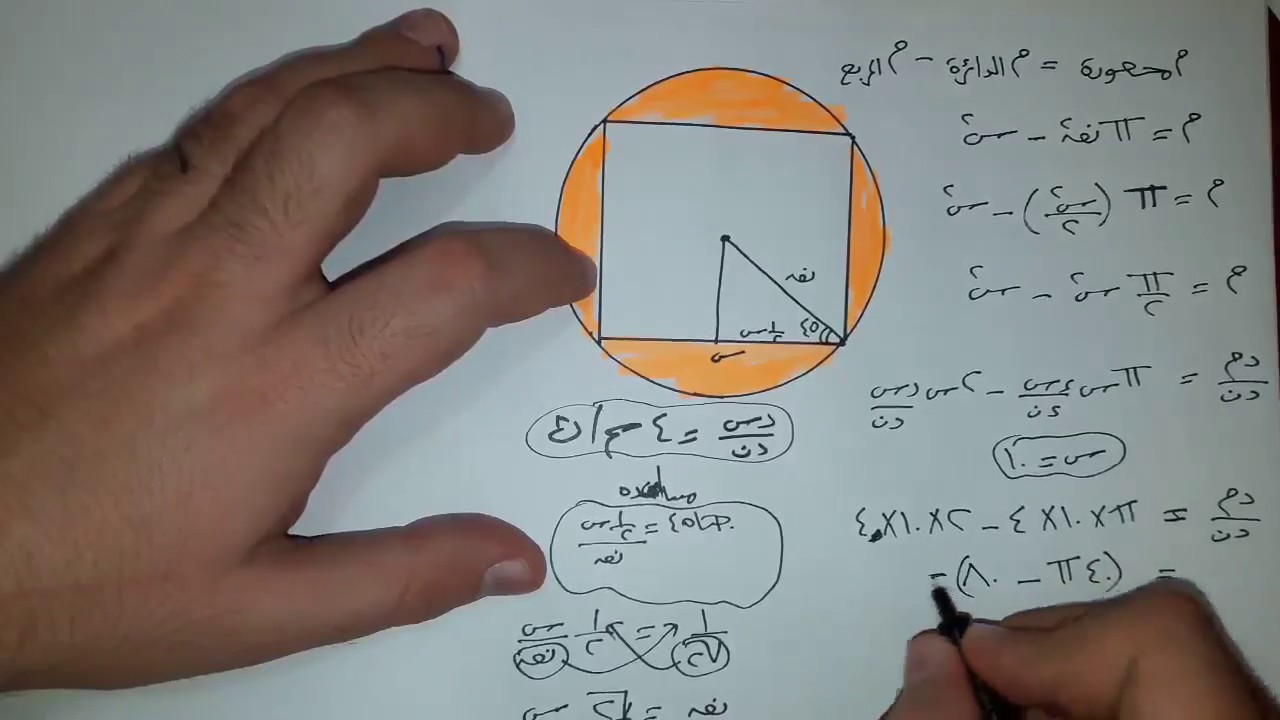 م محصورة = م الدائرة - م المربع
م = π نق² - س²
م = π (س²/٢) - س²
م = π/٢ س² - س²
دم/دن = π س دس/دن - ٢ س دس/دن
س = ١٠
دم/دن = π × ١٠ × ٤ - ٢ × ١٠ × ٤
= (٤٠ π - ٨٠) =
نق
٤٥
١/٢ س
س
دس/دن = ٤ سم/ث
مساعده
جتا ٤٥ = ١/٢ س / نق
١/√٢ = ١/٢ س/نق
نق = ١/√٢ س